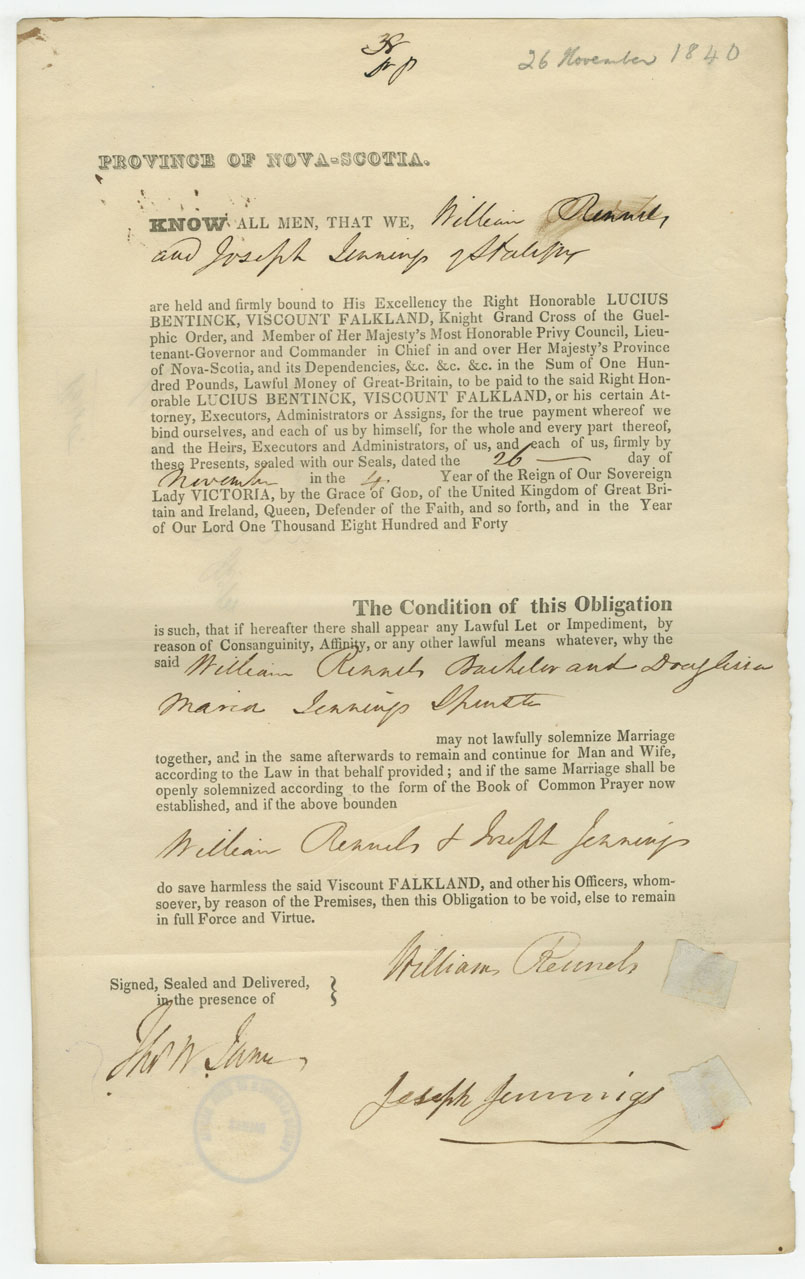 38
26 November 1840
PROVINCE OF NOVA-SCOTIA.
KNOW ALL MEN, THAT WE, William Rennels
and Joseph Jennings of Halifax
are held and firmly bound to His Excellency the Right Honorable LUCIUS
BENTINCK, VISCOUNT FALKLAND, Knight Grand Cross of the Guel-
phic Order, and Member of Her Majesty's Most Honorable Privy Council, Lieu-
tenant-Governor and Commander in Chief in and over Her Majesty's Province
of Nova-Scotia, and its Dependencies, &c. &c. &c. in the Sum of One Hun-
dred Pounds, Lawful Money of Great-Britain, to be paid to the said Right Hon-
orable LUCIUS BENTINCK, VISCOUNT FALKLAND, or his certain At-
torney, Executors, Administrators or Assigns, for the true payment whereof we
bind ourselves, and each of us by himself, for the whole and every part thereof,
and the Heirs, Executors and Administrators, of us, and each of us, firmly by
these Presents, sealed with our Seals, dated the 26 — day of
November in the 4 Year of the Reign of Our Sovereign
Lady VICTORIA, by the Grace of GOD, of the United Kingdom of Great Bri-
tain and Ireland, Queen, Defender of the Faith, and so forth, and in the Year
of Our Lord One Thousand Eight Hundred and Forty
The Condition of this Obligation
is such, that if hereafter there shall appear any Lawful Let or Impediment, by
reason of Consanguinity, Affinity, or any other lawful means whatever, why the
said William Rennels Bachelor and
Maria Jennings Spinster
may not lawfully solemnize Marriage
together, and in the same afterwards to remain and continue for Man and Wife,
according to the Law in that behalf provided ; and if the same Marriage shall be
openly solemnized according to the form of the Book of Common Prayer now
established, and if the above bounden
William Rennels & Joseph Jennings
do save harmless the said Viscount FALKLAND, and other his Officers, whom-
soever, by reason of the Premises, then this Obligation to be void, else to remain
in full Force and Virtue.
William Rennels
Signed, Sealed and Delivered,
in the presence of
Thos W. James
Joseph Jennings